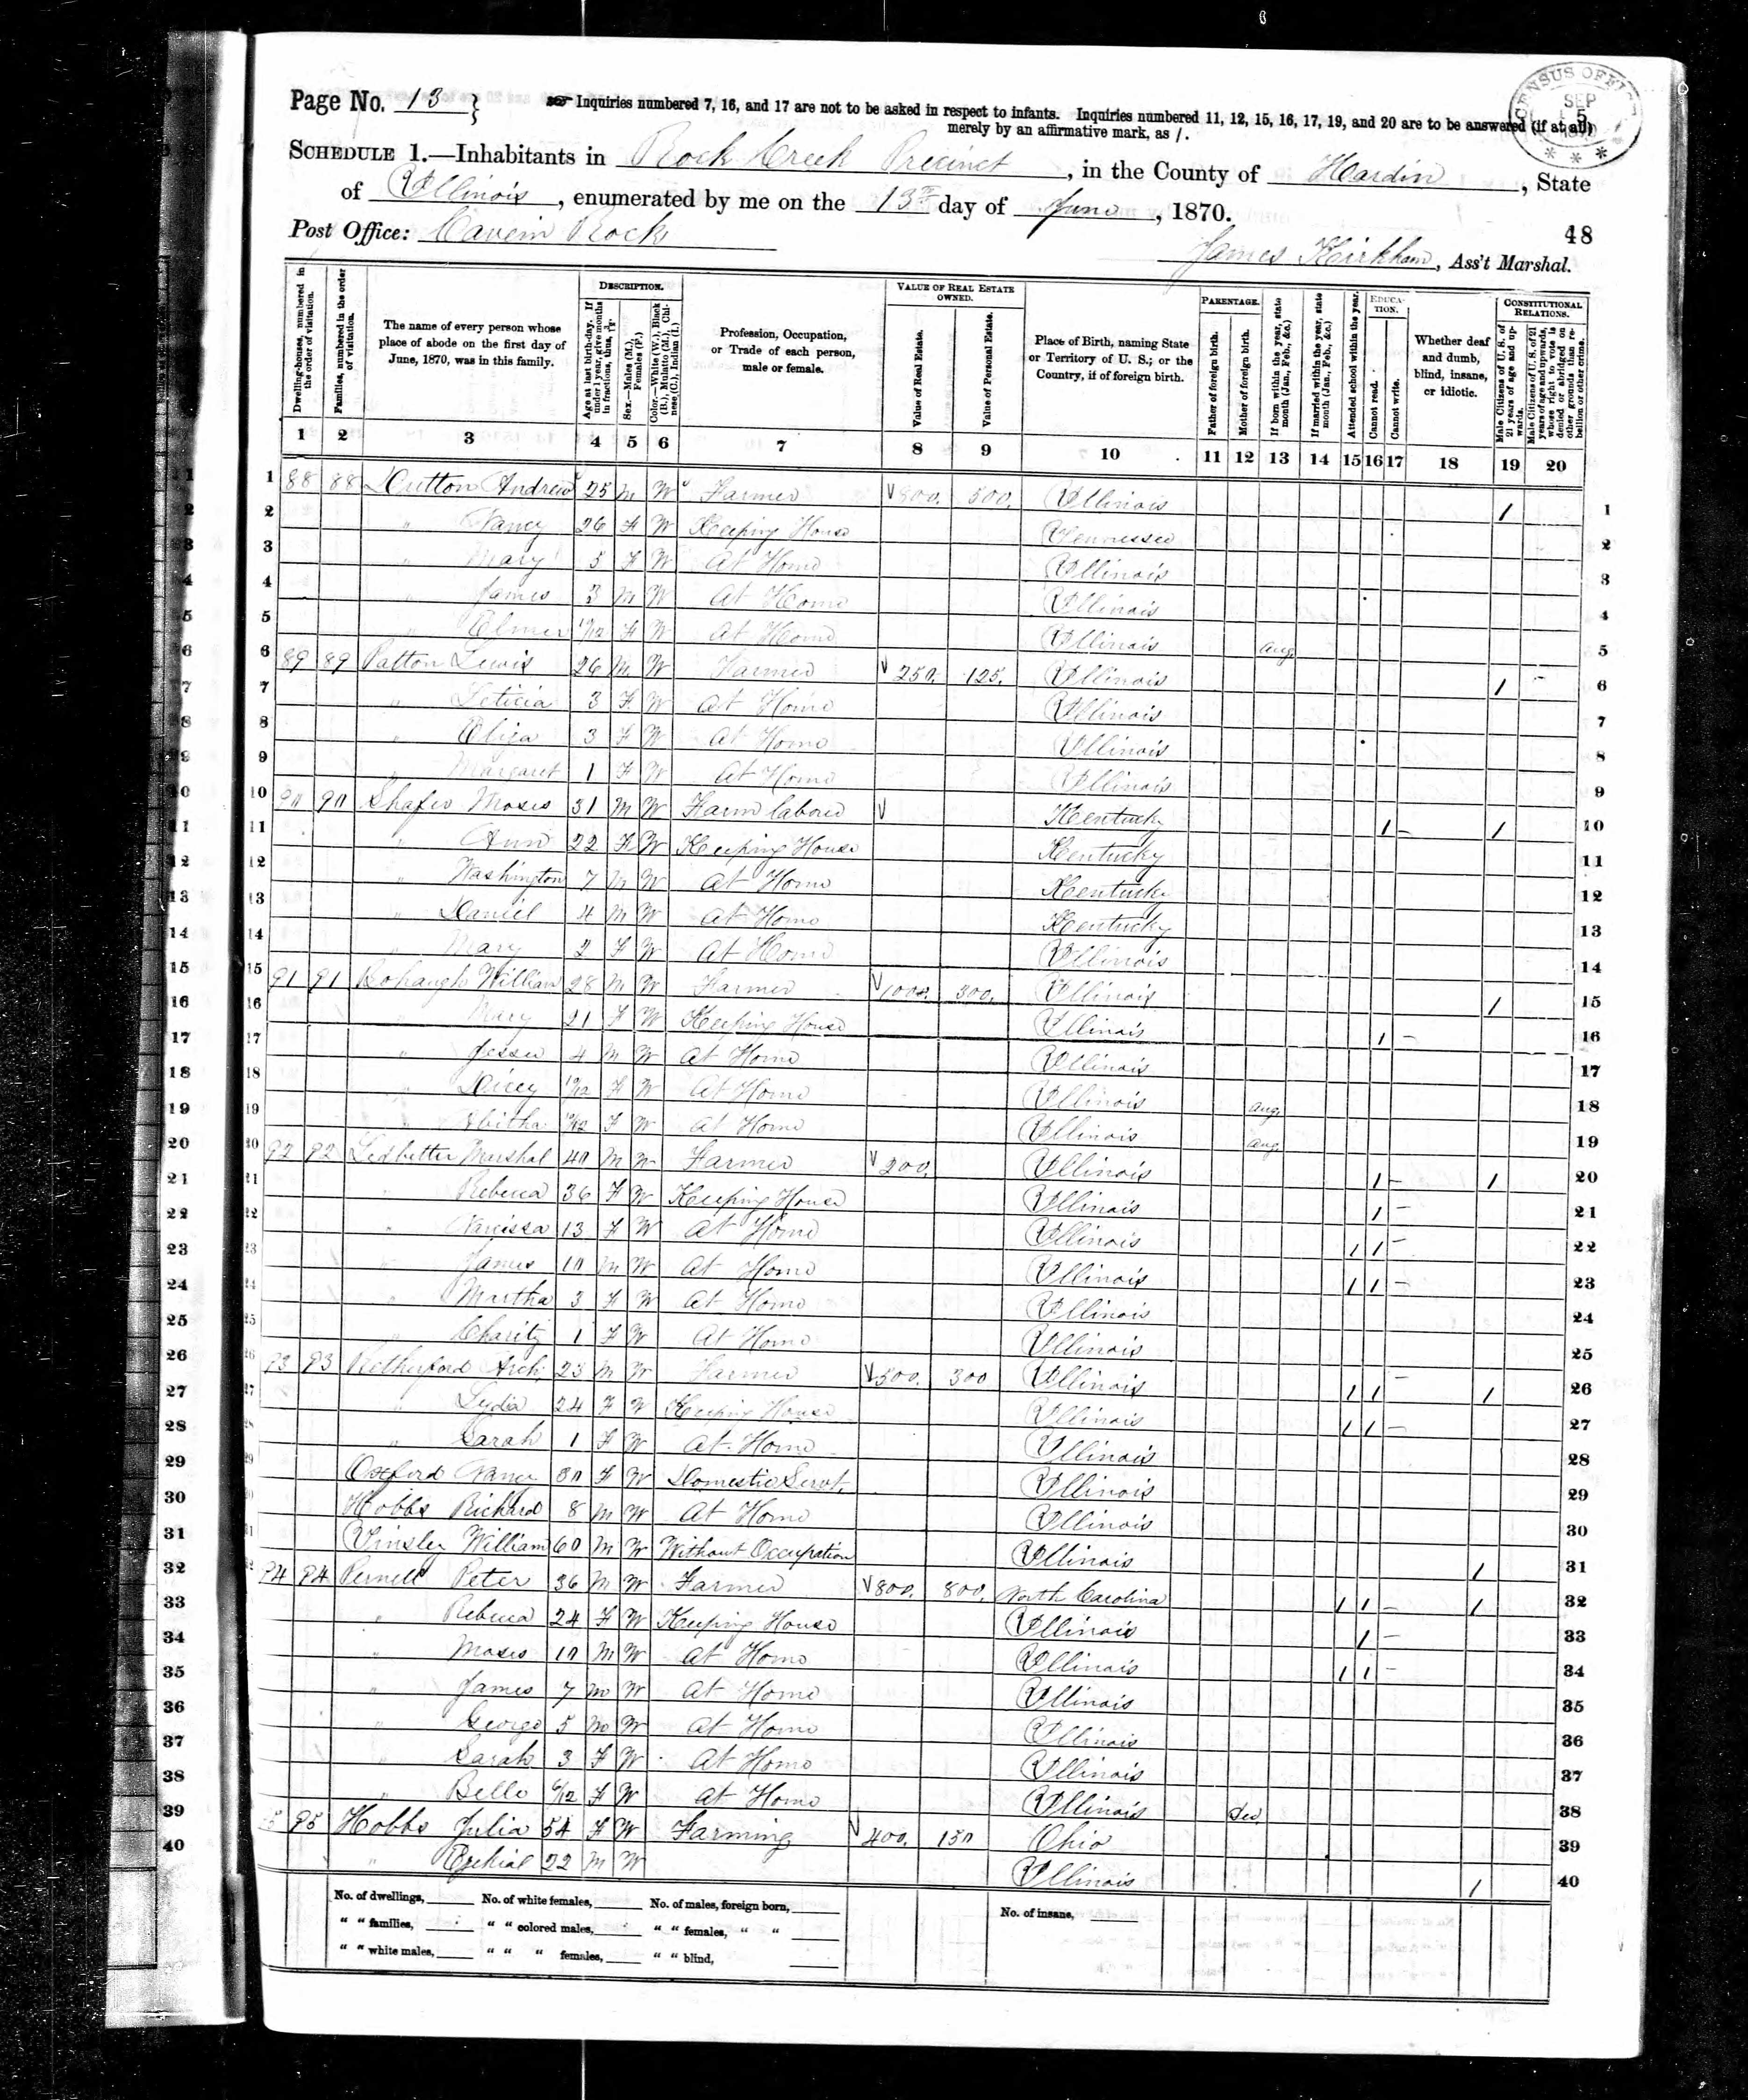 Page No. 13 }
Inquiries numbered 7, 16, and 17 are not to be asked in respect to infants. Inquiries numbered 11, 12, 15, 16, 17, 19, and 20 are to be answered (if at all)
merely by an affirmative mark, as /.
CENSUS OFFICE SEP 5
SCHEDULE 1.—Inhabitants in Rock Creek Precinct, in the County of Hardin, State
of Illinois, enumerated by me on the 13th day of June, 1870.
Post Office: Cavein Rock
48
James Kirkham, Ass't Marshal.
Dwelling-houses, numbered in the order of visitation.
Families, numbered in the order of visitation.
The name of every person whose place of abode on the first day of June, 1870, was in this family.
DESCRIPTION.
Age at last birth-day. If under 1 year, give months in fractions, thus, 3/12.
Sex.—Males (M.), Females (F.)
Color.—White (W.), Black (B.), Mulatto (M.), Chinese (C.), Indian (I.)
Profession, Occupation, or Trade of each person, male or female.
VALUE OF REAL ESTATE OWNED.
Value of Real Estate.
Value of Personal Estate.
Place of Birth, naming State or Territory of U. S.; or the Country, if of foreign birth.
PARENTAGE.
Father of foreign birth.
Mother of foreign birth.
If born within the year, state month (Jan., Feb., &c.)
If married within the year, state month (Jan., Feb., &c.)
Attended school within the year.
EDUCATION.
Cannot read.
Cannot write.
Whether deaf and dumb, blind, insane, or idiotic.
CONSTITUTIONAL RELATIONS.
Male Citizens of U. S. of 21 years of age and upwards.
Male Citizens of U. S. of 21 years of age and upwards, whose right to vote is denied or abridged on other grounds than rebellion or other crime.
1 2 3 4 5 6 7 8 9 10 11 12 13 14 15 16 17 18 19 20
1 88 88 Dutton Andrew 25 M W Farmer 800. 500. Illinois / 1
2 " Nancy 26 F W Keeping House Tennessee 2
3 " Mary 5 F W At Home Illinois 3
4 " James 3 M W At Home Illinois 4
5 " Elmer 10/12 F W At Home Illinois Aug. 5
6 89 89 Patton Lewis 26 M W Farmer 250. 125. Illinois / 6
7 " Leticia 3 F W At Home Illinois 7
8 " Eliza 3 F W At Home Illinois 8
9 " Margaret 1 F W At Home Illinois 9
10 90 90 Moses 31 M W Farm labour Kentucky / / 10
11 " Ann 22 F W Keeping House Kentucky 11
12 " Washington 7 M W At Home Kentucky 12
13 " Daniel 4 M W At Home Kentucky 13
14 " Mary 2 F W At Home Illinois 14
15 91 91 William 28 M W Farmer 1000. 300. Illinois / 15
16 " Mary 21 F W Keeping House Illinois / 16
17 " Jesse 4 M W At Home Illinois 17
18 " Dicey 10/12 F W At Home Illinois Aug. 18
19 " 10/12 F W At Home Illinois Aug. 19
20 92 92 Ledbetter Marshal 40 M W Farmer 200. Illinois / / 20
21 " Rebecca 36 F W Keeping House Illinois / 21
22 " Narcissa 13 F W At Home Illinois / / 22
23 " James 10 M W At Home Illinois / / 23
24 " Martha 3 F W At Home Illinois 24
25 " Charity 1 F W At Home Illinois 25
26 93 93 Retherford Arch 23 M W Farmer 500. 300 Illinois / / / 26
27 " Lydia 24 F W Keeping House Illinois / / 27
28 " Sarah 1 F W At Home Illinois 28
29 Oxford Nancy 30 F W Domestic Servt. Illinois 29
30 Hobbs Richard 8 M W At Home Illinois 30
31 William 60 M W Without Occupation Illinois / 31
32 94 94 Pernell Peter 36 M W Farmer 800. 800. North Carolina / / / 32
33 " Rebecca 24 F W Keeping House Illinois / 33
34 " Moses 10 M W At Home Illinois / / 34
35 " James 7 M W At Home Illinois 35
36 " George 5 M W At Home Illinois 36
37 " Sarah 3 F W At Home Illinois 37
38 " Belle 6/12 F W At Home Illinois Dec. 38
39 95 95 Hobbs Julia 54 F W Farming 400. 150 Ohio 39
40 " Ezekial 22 M W Illinois / 40
No. of dwellings, No. of white females, No. of males, foreign born, No. of insane,
" " families, " " colored males, " " females, " "
" " white males, " " " females, " " blind,